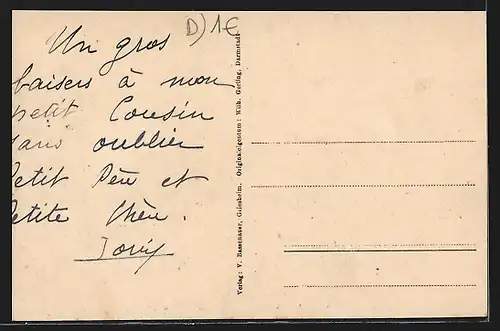 D) 1€
Un gros
baisers à mon
petit Cousin
sans oublier
Petit Père et
Petite Mère.
Verlag: V. Bassenauer, Griesheim. Originaleigentum: Wilh. Gerling, Darmstadt